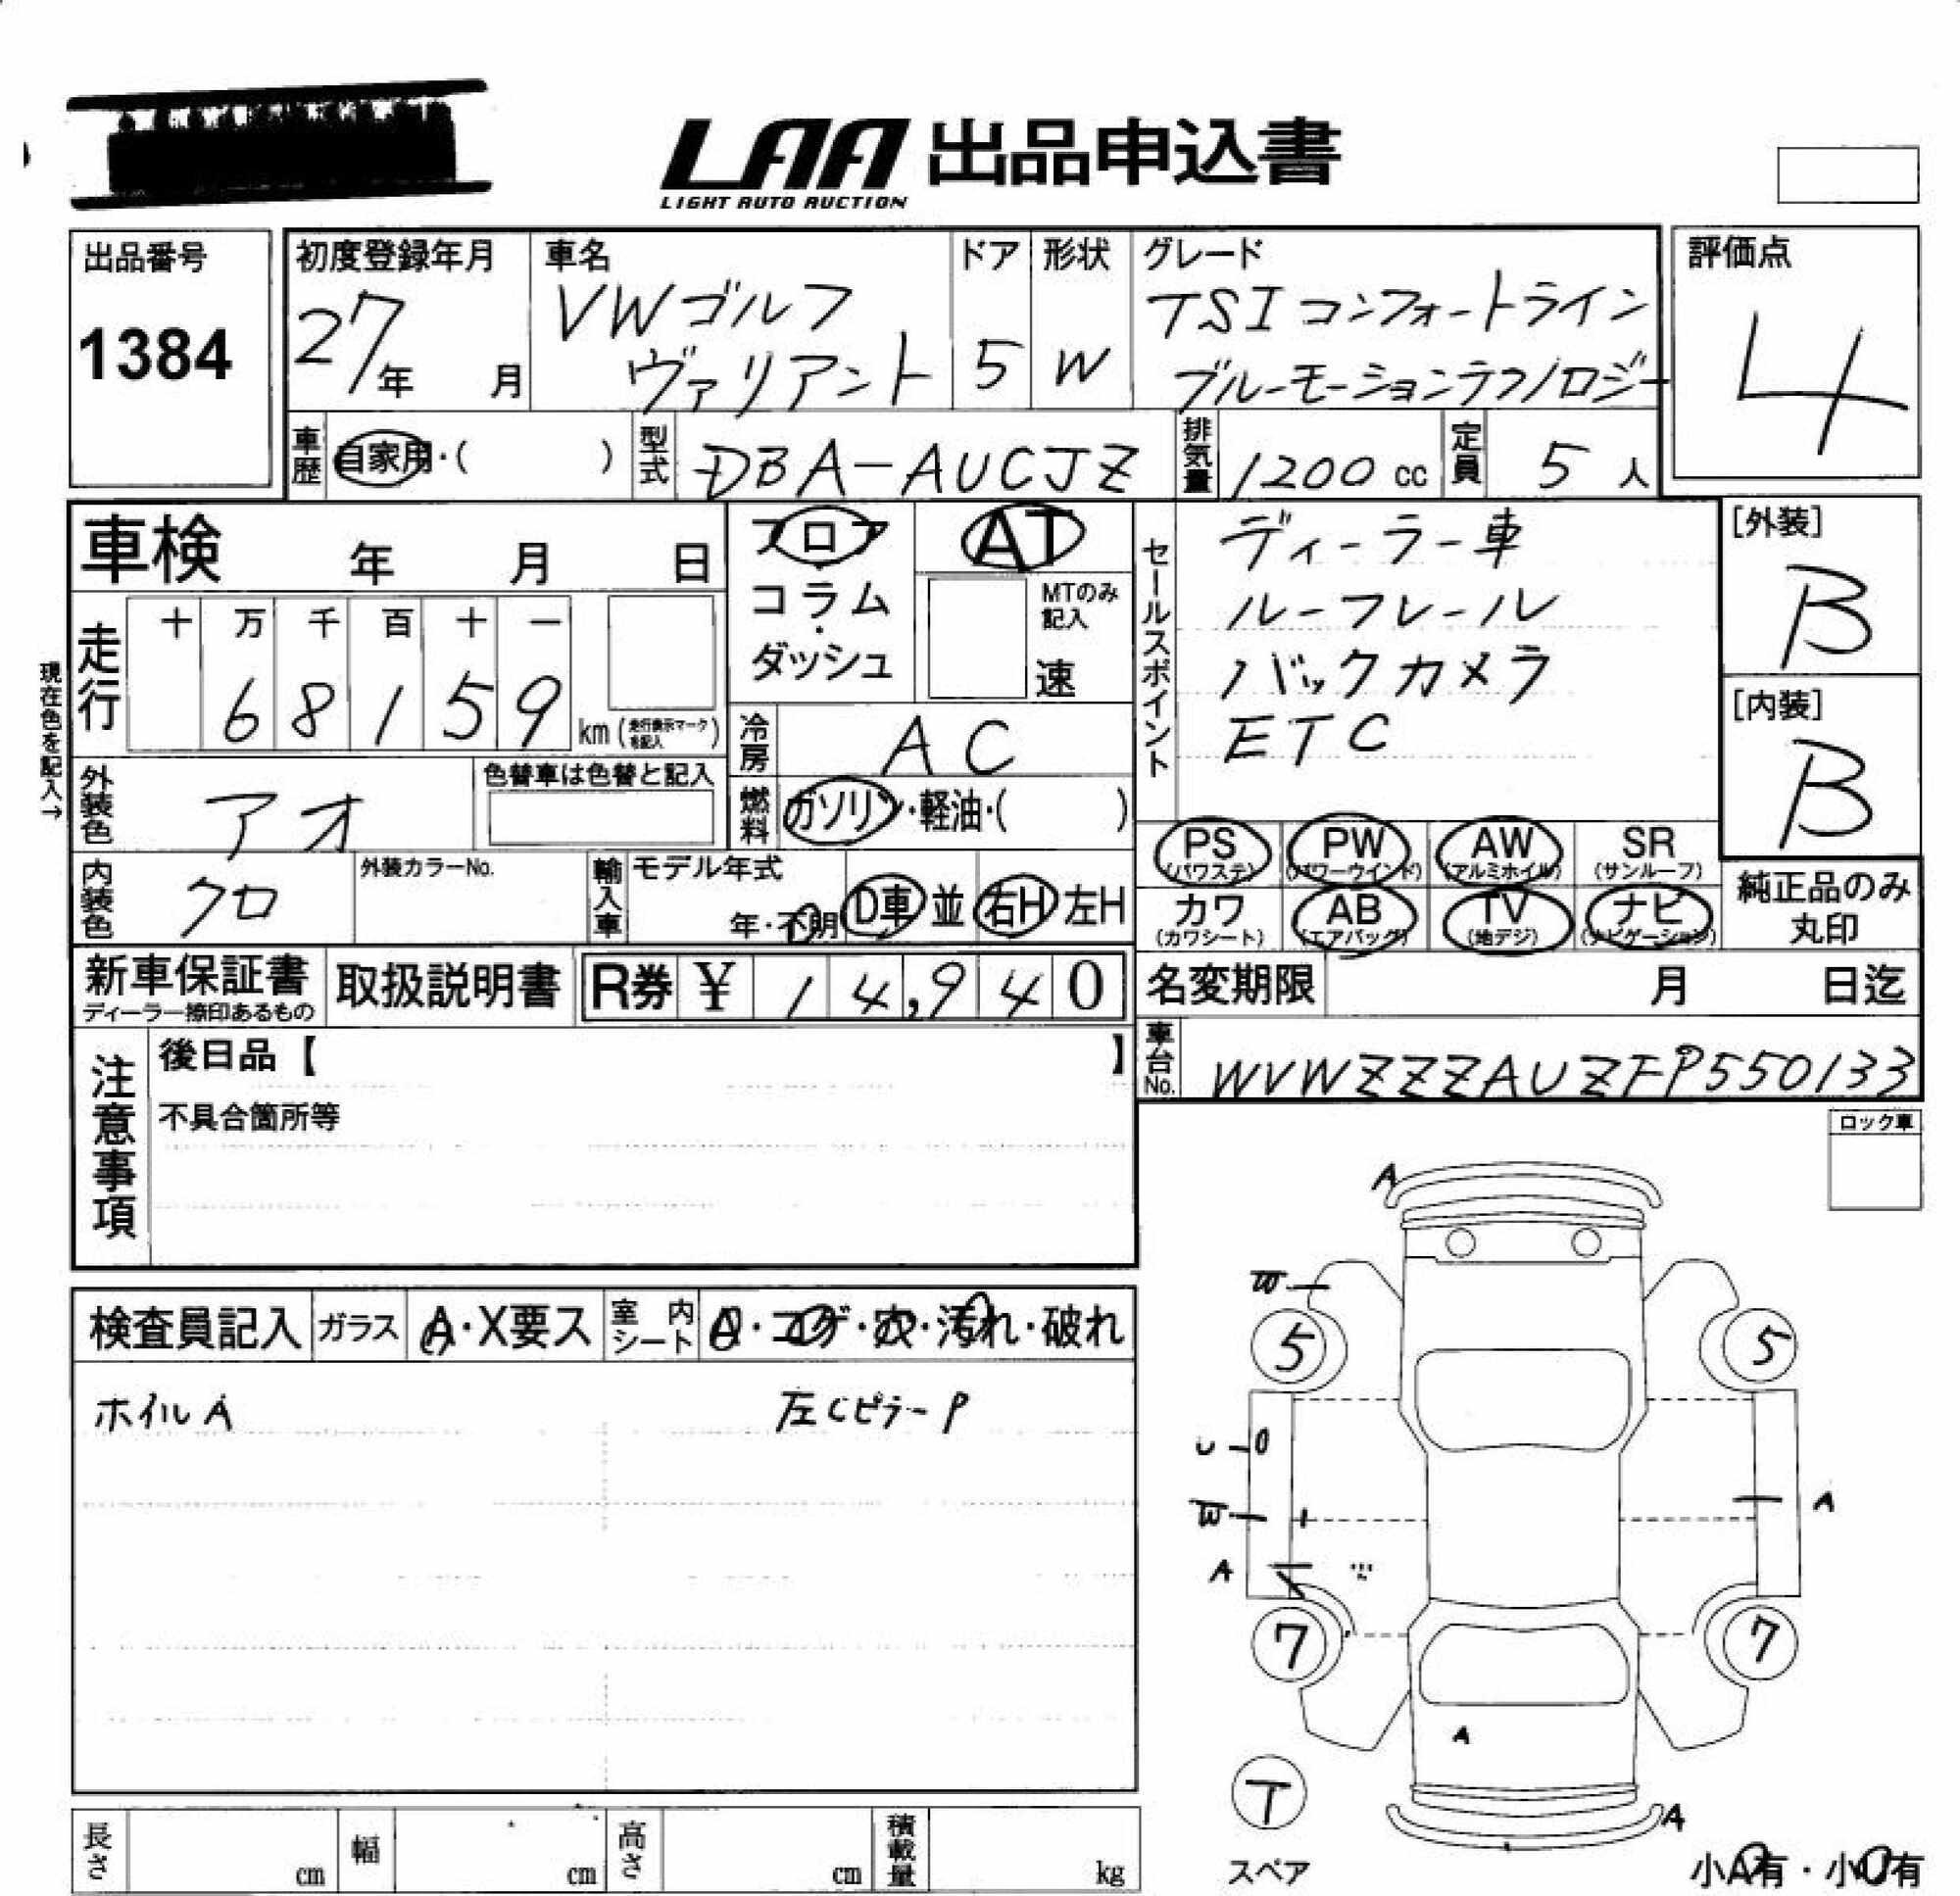 LAA 出品申込書
LIGHT AUTO AUCTION
出品番号
1384
初度登録年月
27年 月
車名
VWゴルフ
ヴァリアント
ドア
5
形状
W
グレード
TSIコンフォートライン
ブルーモーションテクノロジー
評価点
4
車歴 自家用・( )
型式 DBA-AUCJZ
排気量 1200 cc
定員 5 人
車検 年 月 日
フロア・コラム・ダッシュ
AT
MTのみ記入
速
セールスポイント
ディーラー車
ルーフレール
バックカメラ
ETC
[外装]
B
[内装]
B
現在色を記入→
走行
十 万 千 百 十 一
6 8 1 5 9 km (走行表示マークを記入)
冷房 AC
燃料 ガソリン・軽油・( )
外装色 アオ
色替車は色替と記入
内装色 クロ
外装カラーNo.
輸入車
モデル年式
年・不明
D車 並 右H 左H
PS (パワステ)
PW (パワーウインド)
AW (アルミホイル)
SR (サンルーフ)
カワ (カワシート)
AB (エアバッグ)
TV (地デジ)
ナビ (ナビゲーション)
純正品のみ
丸印
新車保証書
ディーラー捺印あるもの
取扱説明書
R券 ¥ 14,940
名変期限 月 日迄
車台No. WVWZZZAUZFP550133
注意事項
後日品【 】
不具合箇所等
ロック車
検査員記入
ガラス A・X要ス
室内シート A・コゲ・穴・汚れ・破れ
ホイルA
左CピラーP
A
W
5
5
U
W
A
A
7
7
A
T
スペア
A
小A有・小U有
長さ cm
幅 cm
高さ cm
積載量 kg